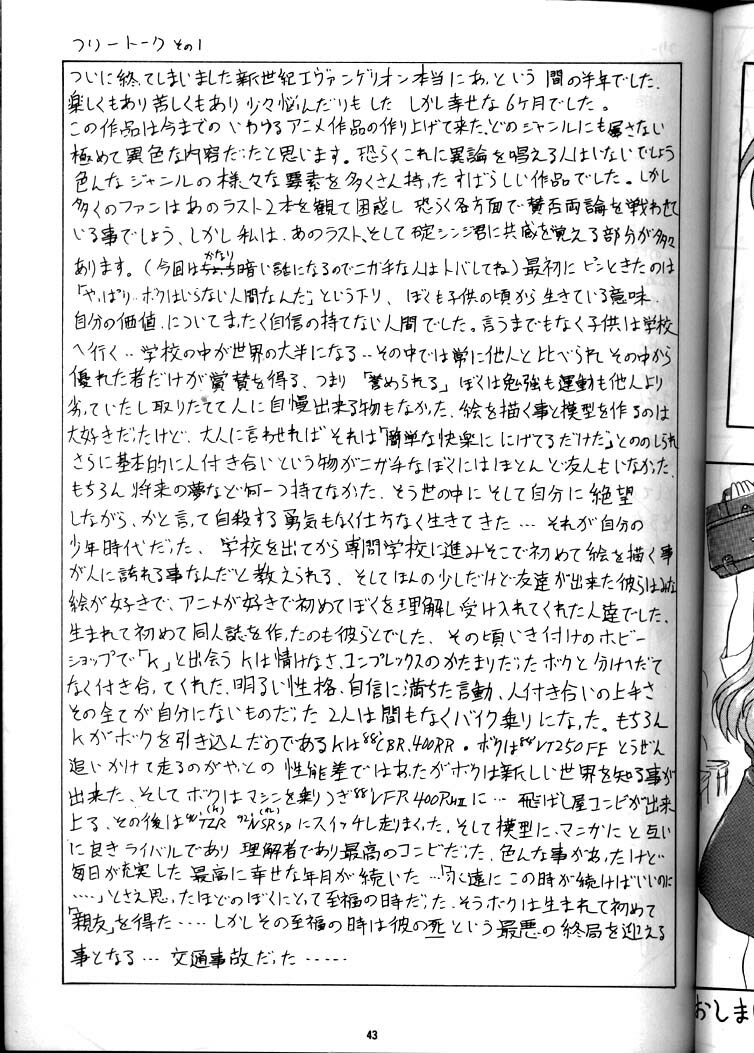 フリートーク その1
ついに終ってしまいました新世紀エヴァンゲリオン本当にあっという間の半年でした.
楽しくもあり苦しくもあり少々悩んだりもした しかし幸せな6ヶ月でした。
この作品は今までのいわゆるアニメ作品の作り上げて来た、どのジャンルにも属さない
極めて異色な内容だったと思います。恐らくこれに異論を唱える人はいないでしょう
色んなジャンルの様々な要素を多くさん持ったすばらしい作品でした。しかし
多くのファンはあのラスト2本を観て困惑し 恐らく各方面で賛否両論を戦わせて
いる事でしょう、しかし私は、あのラスト、そして碇シンジ君に共感を覚える部分が多々
あります。(今回はかなり暗い話になるのでニガ手な人はトバしてね)最初にピンときたのは
「やっぱり‥ボクはいらない人間なんだ」という下り、ぼくも子供の頃から生きている意味、
自分の価値、についてまったく自信の持てない人間でした。言うまでもなく子供は学校
へ行く‥学校の中が世界の大半になる‥その中では常に他人と比べられその中から
優れた者だけが賞賛を得る、つまり「誉められる」ぼくは勉強も運動も他人より
劣っていたし取りたてて人に自慢出来る物もなかった、絵を描く事と模型を作るのは
大好きだったけど、大人に言わせればそれは「簡単な快楽ににげてるだけだ」とののしられ
さらに基本的に人付き合いという物がニガ手なぼくにはほとんど友人もいなかった、
もちろん将来の夢など何一つ持てなかった、そう世の中にそして自分に絶望
しながら、かと言って自殺する勇気もなく仕方なく生きてきた… それが自分の
少年時代だった、学校を出てから専問学校に進みそこで初めて絵を描く事
が人に誇れる事なんだと教えられる、そしてほんの少しだけど友達が出来た彼らはみな
絵が好きで、アニメが好きで初めてぼくを理解し受け入れてくれた人達でした、
生まれて初めて同人誌を作ったのも彼らとでした、その頃いき付けのホビー
ショップで「K」と出会うKは情けなさ、コンプレックスのかたまりだったボクと分けへだて
なく付き合ってくれた、明るい性格、自信に満ちた言動、人付き合いの上手さ
その全てが自分にないものだった 2人は間もなくバイク乗りになった。もちろん
Kがボクを引き込んだのであるKは'88CBR400RR・ボクは'88VT250FEとうぜん
追いかけて走るのがやっとの 性能差ではあったがボクは新しい世界を知る事が
出来た、そしてボクはマシンを乗りつぎ'88VFR400RⅡに… 飛ばし屋コンビが出来
上る、その後は'91TZR(K) '92NSRSP(ボク)にスイッチし走りまくった、そして模型に、マニアックに互い
に良きライバルであり理解者であり最高のコンビだった、色んな事があったけど
毎日が充実した 最高に幸せな年月が続いた…「永遠にこの時が続けばいいのに
‥‥」とさえ思ったほどのぼくにとって至福の時だった、そうボクは生まれて初めて
「親友」を得た‥‥しかしその至福の時は彼の死という最悪の終局を迎える
事となる… 交通事故だった‥‥‥
43
おしまい